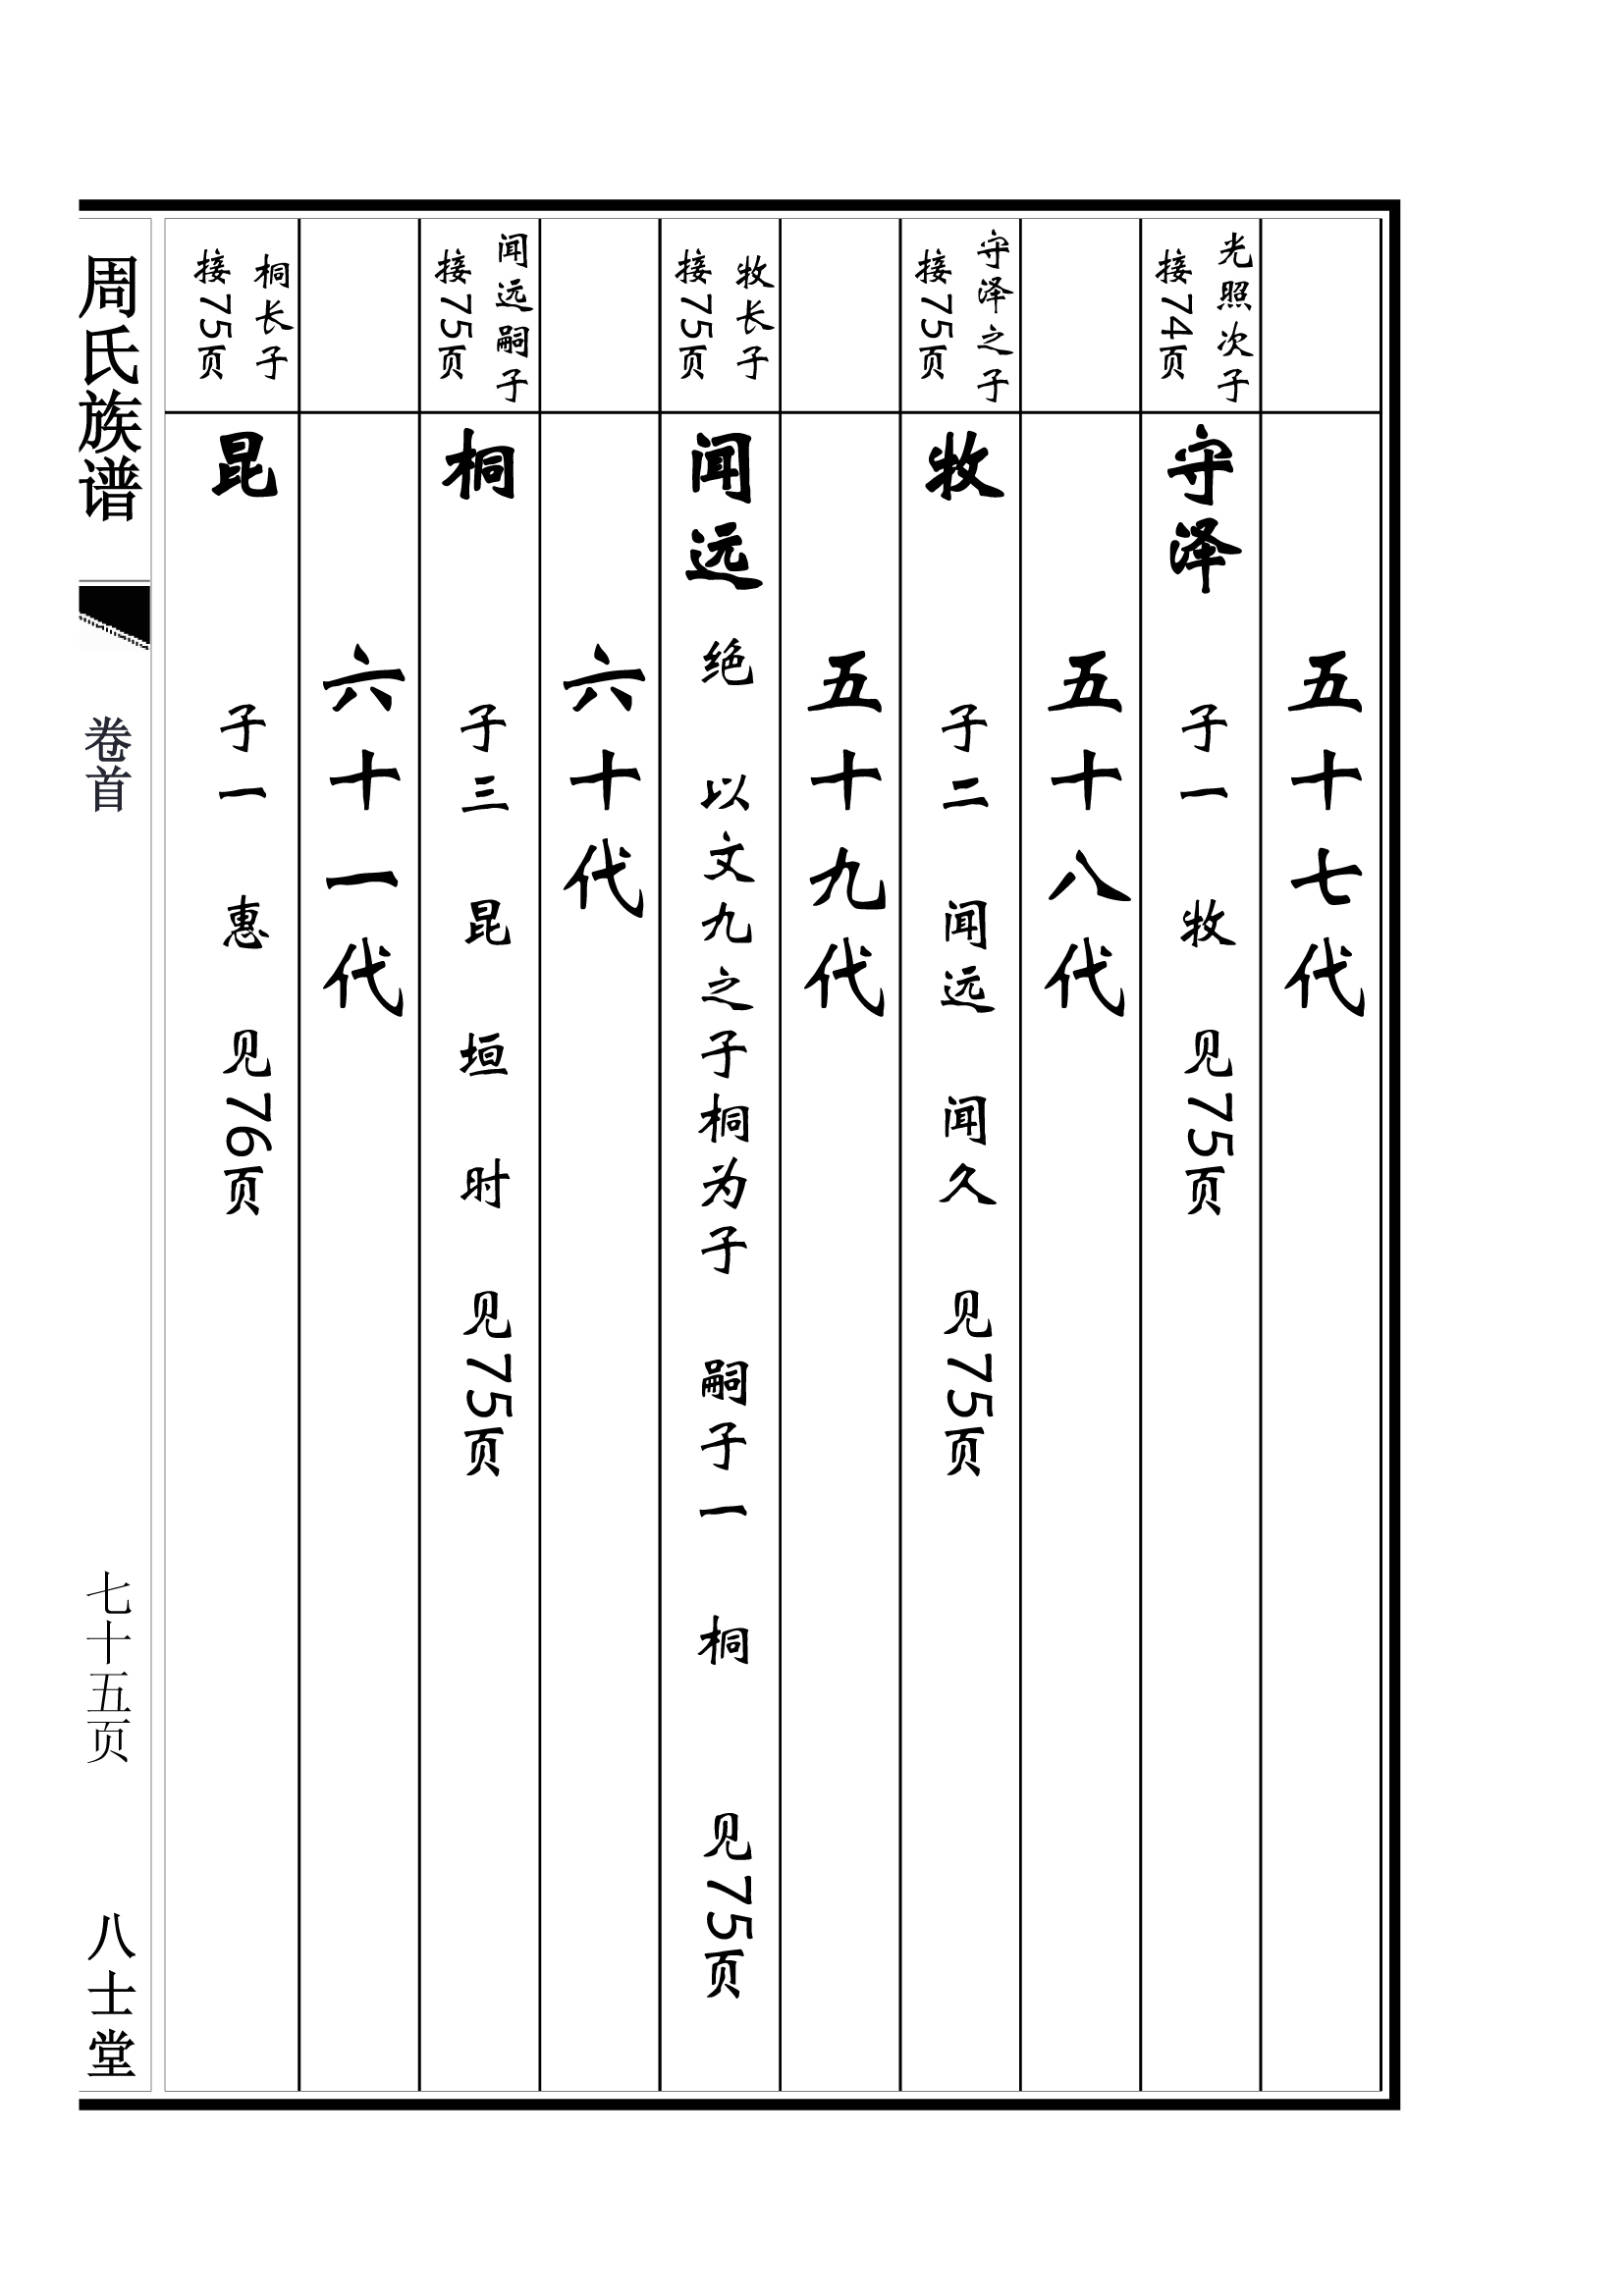 五十七代
光照次子
接74页
守泽 子一 牧 见75页
五十八代
守泽之子
接75页
牧 子二 闻远 闻久 见75页
五十九代
牧长子
接75页
闻远 绝 以文九之子桐为子 嗣子一 桐 见75页
六十代
闻远嗣子
接75页
桐 子三 昆 垣 时 见75页
六十一代
桐长子
接75页
昆 子一 惠 见76页
周氏族谱 卷首 七十五页 八士堂